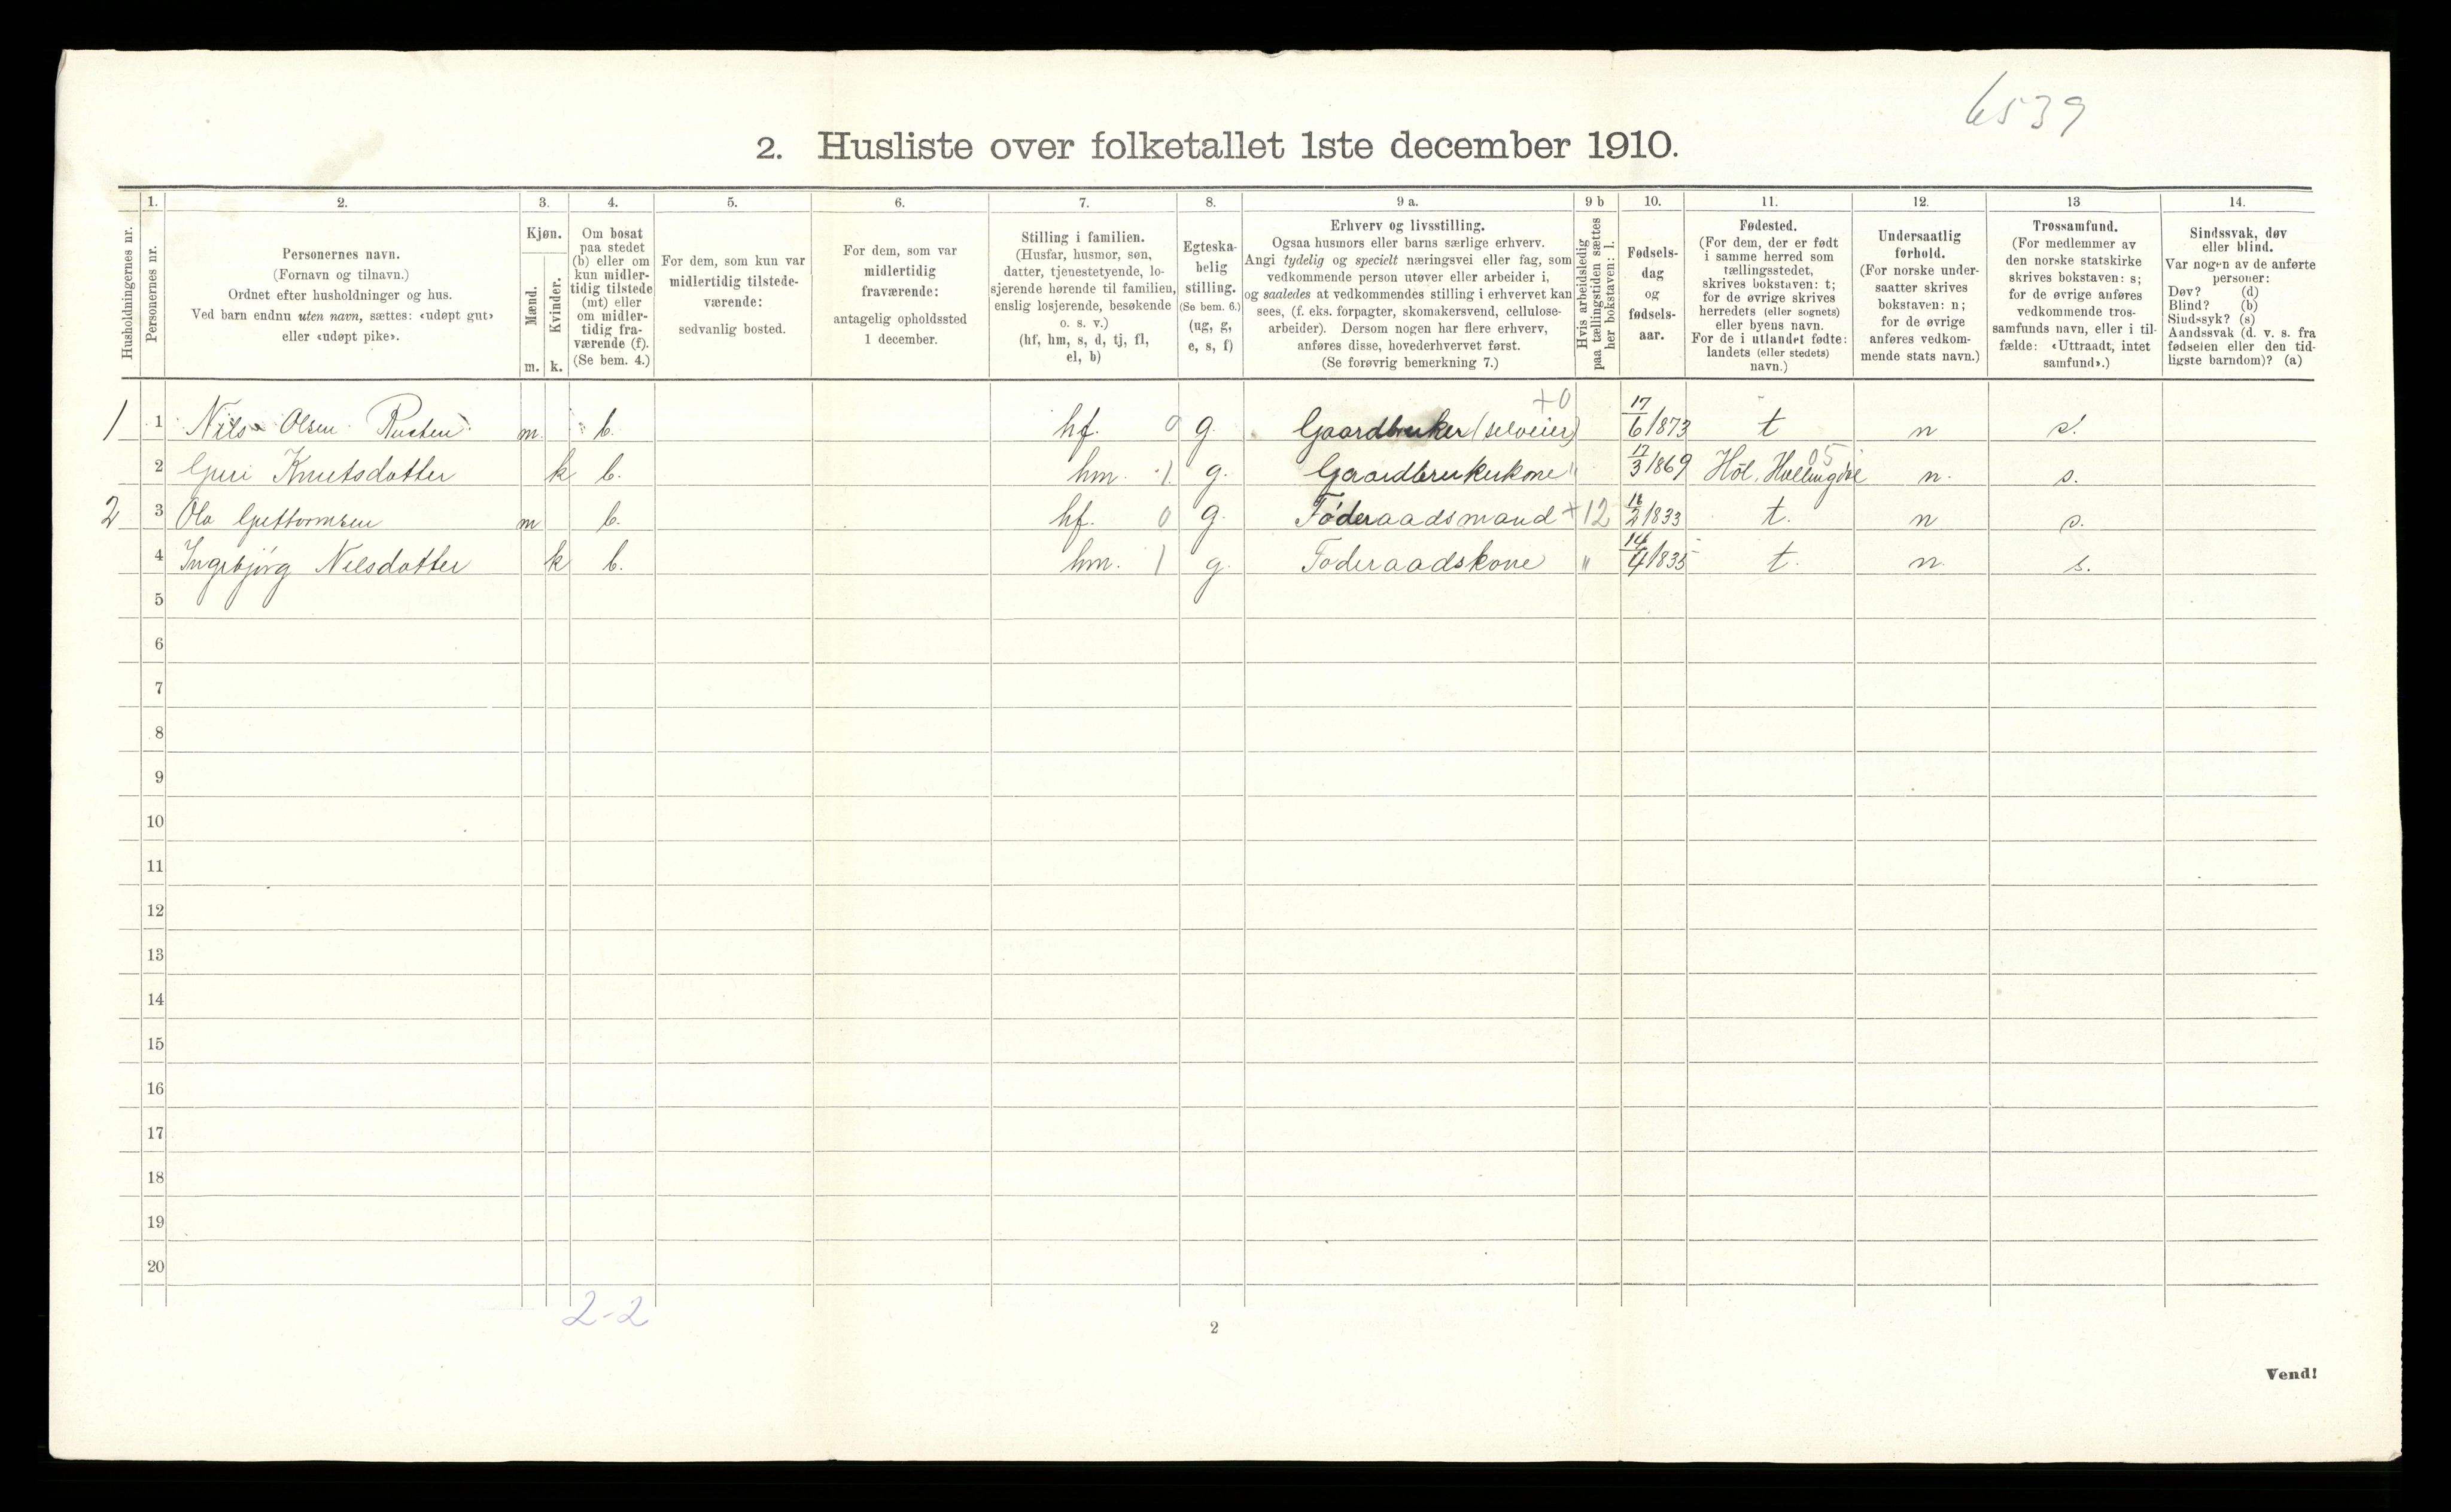 6539
2. Husliste over folketallet 1ste december 1910.
Husholdningernes nr.
1.
Personernes nr.
2.
Personernes navn.
(Fornavn og tilnavn.)
Ordnet efter husholdninger og hus.
Ved barn endnu uten navn, sættes: «udøpt gut»
eller «udøpt pike».
3.
Kjøn.
Mænd.
Kvinder.
m. k.
4.
Om bosat
paa stedet
(b) eller om
kun midler-
tidig tilstede
(mt) eller
om midler-
tidig fra-
værende (f).
(Se bem. 4.)
5.
For dem, som kun var
midlertidig tilstede-
værende:
sedvanlig bosted.
6.
For dem, som var
midlertidig
fraværende:
antagelig opholdssted
1 december.
7.
Stilling i familien.
(Husfar, husmor, søn,
datter, tjenestetyende, lo-
sjerende hørende til familien,
enslig losjerende, besøkende
o. s. v.)
(hf, hm, s, d, tj, fl,
el, b)
8.
Egteska-
belig
stilling.
(Se bem. 6.)
(ug, g,
e, s, f)
9 a.
Erhverv og livsstilling.
Ogsaa husmors eller barns særlige erhverv.
Angi tydelig og specielt næringsvei eller fag, som
vedkommende person utøver eller arbeider i,
og saaledes at vedkommendes stilling i erhvervet kan
sees, (f. eks. forpagter, skomakersvend, cellulose-
arbeider). Dersom nogen har flere erhverv,
anføres disse, hovederhvervet først.
(Se forøvrig bemerkning 7.)
9 b
Hvis arbeidsledig
paa tællingstiden sættes
her bokstaven: l.
10.
Fødsels-
dag
og
fødsels-
aar.
11.
Fødested.
(For dem, der er født
i samme herred som
tællingsstedet,
skrives bokstaven: t;
for de øvrige skrives
herredets (eller sognets)
eller byens navn.
For de i utlandet fødte:
landets (eller stedets)
navn.)
12.
Undersaatlig
forhold.
(For norske under-
saatter skrives
bokstaven: n;
for de øvrige
anføres vedkom-
mende stats navn.)
13
Trossamfund.
(For medlemmer av
den norske statskirke
skrives bokstaven: s;
for de øvrige anføres
vedkommende tros-
samfunds navn, eller i til-
fælde: «Uttraadt, intet
samfund».)
14.
Sindssvak, døv
eller blind.
Var nogen av de anførte
personer:
Døv? (d)
Blind? (b)
Sindssyk? (s)
Aandssvak (d. v. s. fra
fødselen eller den tid-
ligste barndom)? (a)
1 1 Nils Olsen Rusten m. b. hf. 0 g. Gaardbruker (selveier) +0 17/6 1873 t n s.
2 Guri Knutsdatter k b. hm. 1. g. Gaardbrukerkone " 17/3 1869 Hol, Hallingdal 05 n. s.
2 3 Ola Guttormsen m b. hf. 0 g. Føderaadsmand +12 /2 1833 t. n s.
4 Ingebjørg Nilsdatter k b. hm. 1 g. Føderaadskone " 14/4 1835 t. n. s.
5
6
7
8
9
10
11
12
13
14
15
16
17
18
19
20
2-2
2
Vend!